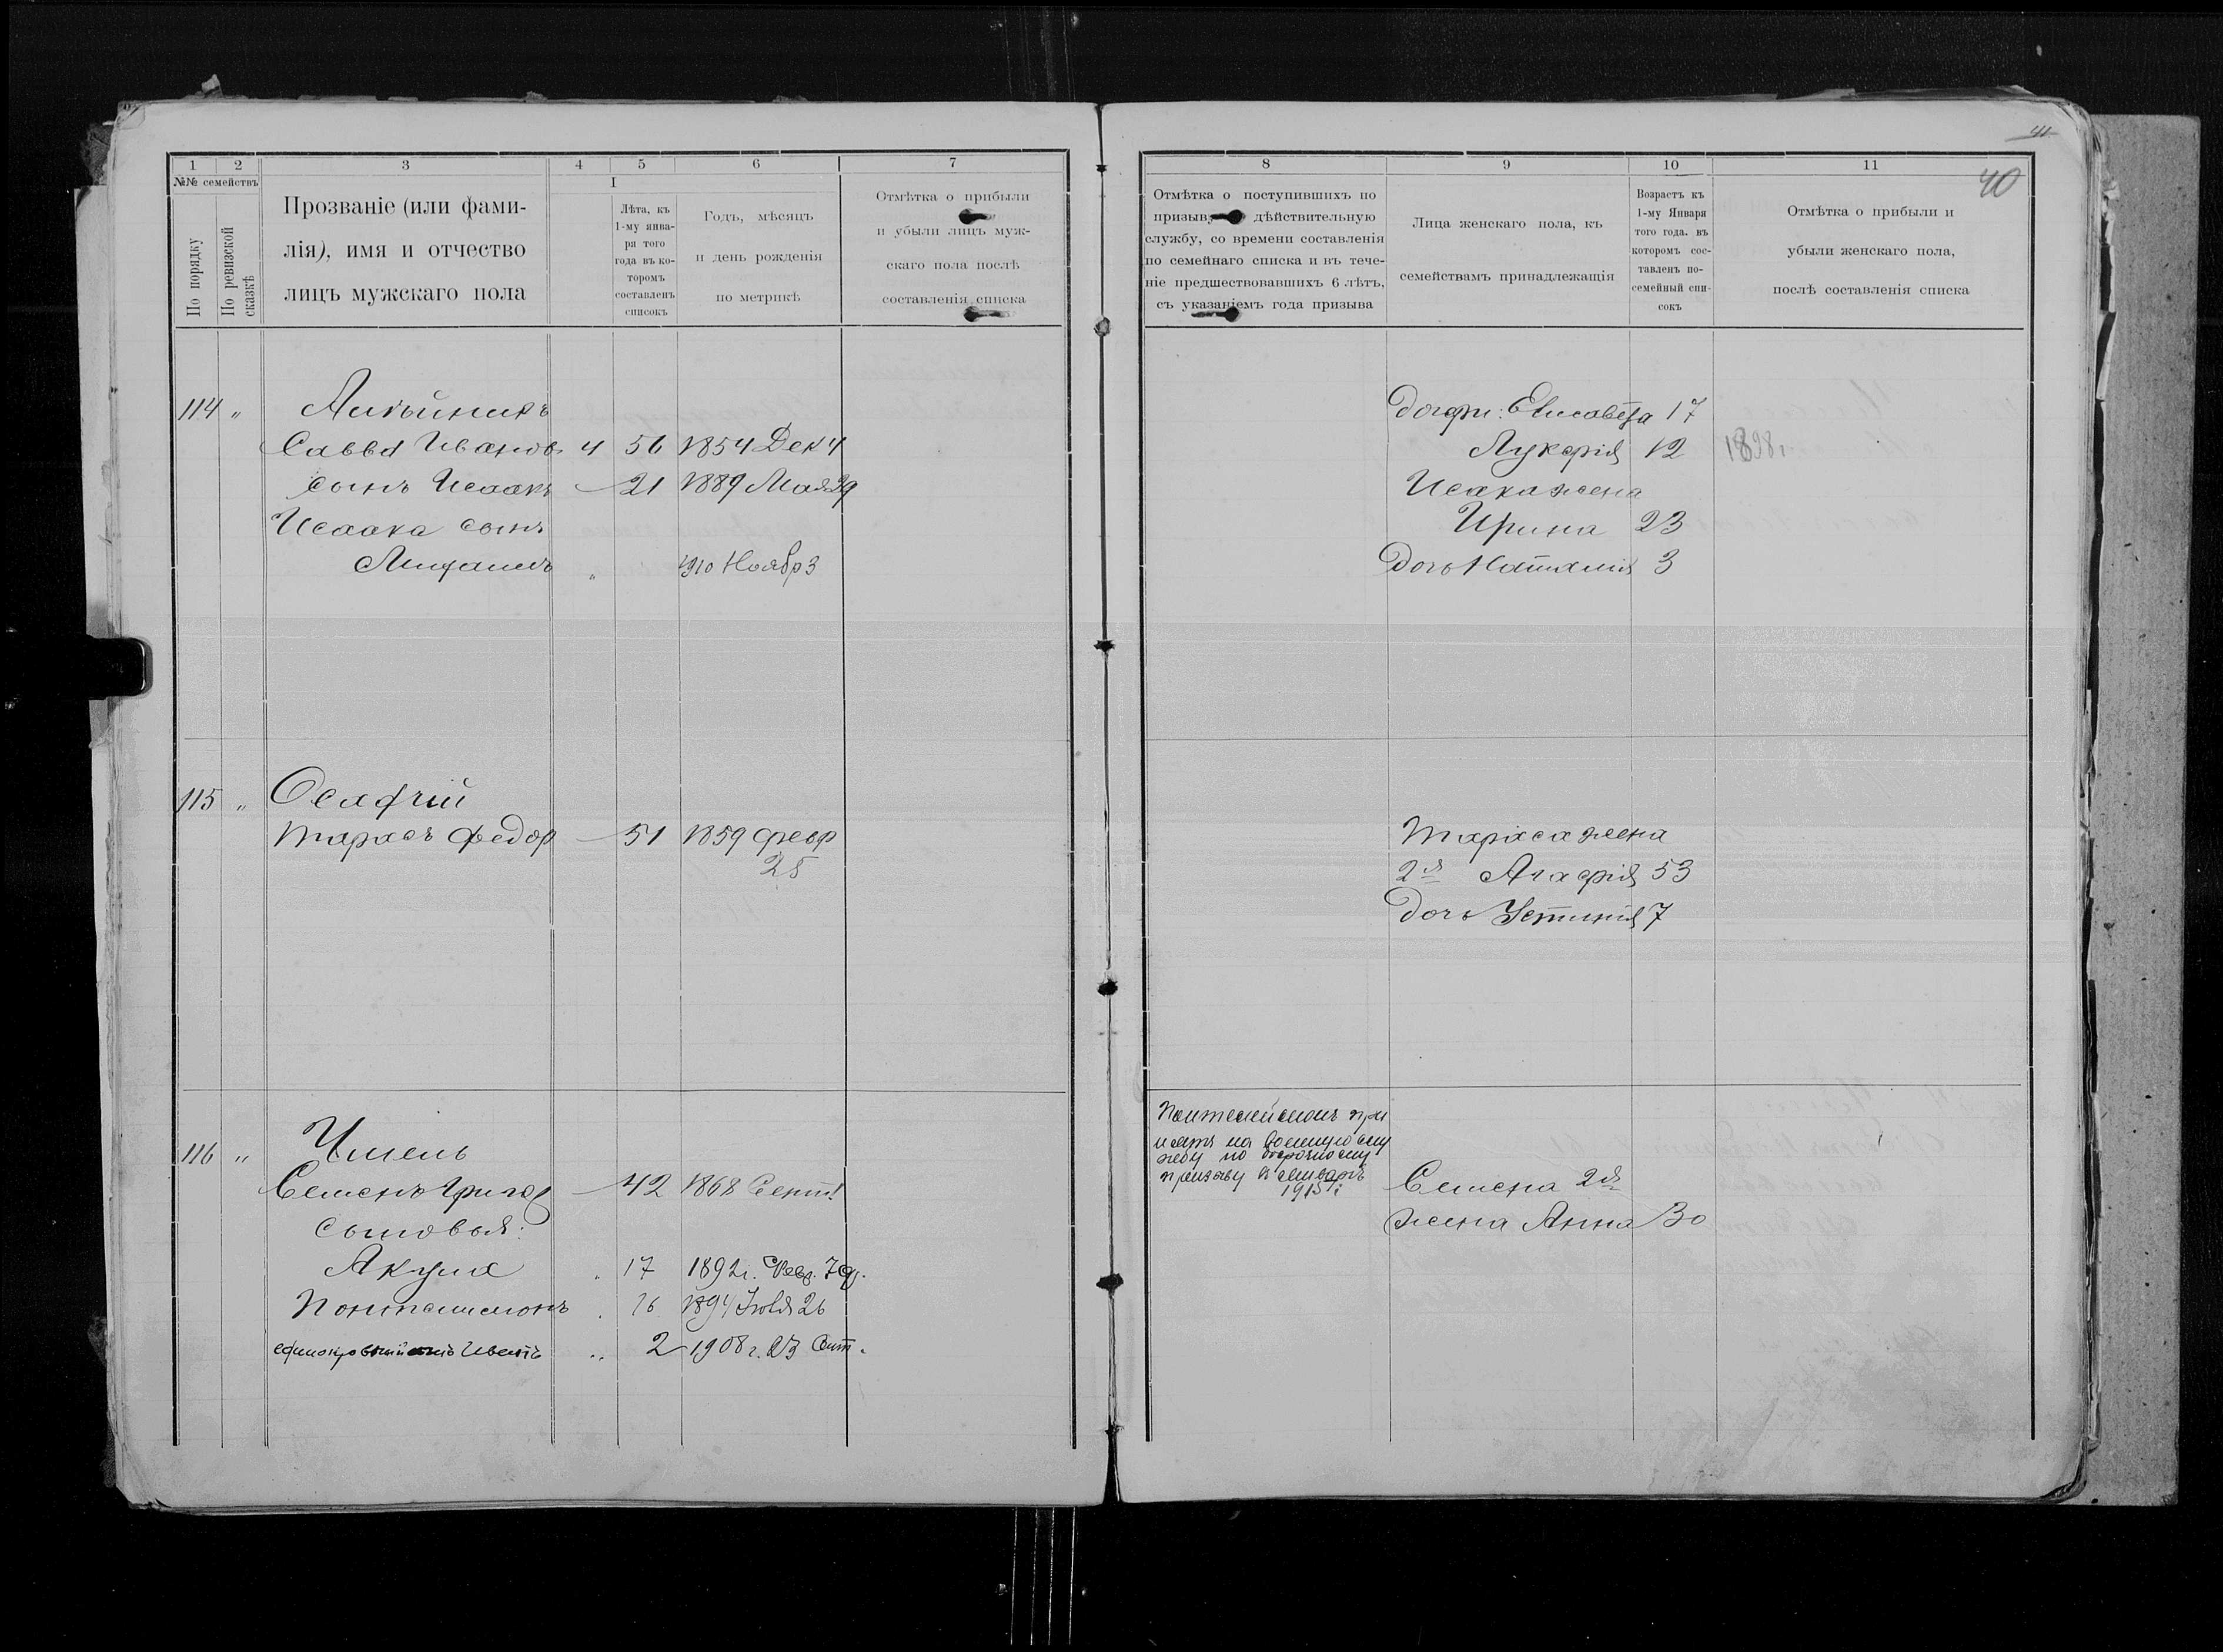 1
2
3
4
5
6
7
№№ семействъ
По порядку
По ревизской сказкѣ
Прозваніе (или фами-
лія), имя и отчество
лицъ мужскаго пола
I
Лѣта, къ
1-му янва-
ря того
года въ ко-
торомъ
составленъ
списокъ
Годъ, мѣсяцъ
и день рожденія
по метрикѣ
Отмѣтка о прибыли
и убыли лицъ муж-
скаго пола послѣ
составленія списка
114 „
Савва Иванов 4 56 1854 Дек 4
сынъ Исаакъ — 21 1889 Мая 29
Исаака сынъ
„ 1910 Ноябр 3
115 „ Осадчій
Тарасъ Федор — 51 1859 февр
25
116 „ Чмель
Семенъ Григор — 42 1868 Сент 1
сыновья:
Акула „ 17 1892 г. Февр. 7 д.
Понтелимонъ . 16 1894 Іюля 26
„ 2 1908 г. 23 Сент.
41
40
8
9
10
11
Отмѣтка о поступившихъ по
призыву дѣйствительную
службу, со времени составленія
по семейнаго списка и въ тече-
ніе предшествовавшихъ 6 лѣтъ,
съ указаніемъ года призыва
Лица женскаго пола, къ
семействамъ принадлежащія
Возрастъ къ
1-му Января
того года, въ
которомъ сос-
тавленъ по-
семейный спи-
сокъ
Отмѣтка о прибыли и
убыли женскаго пола,
послѣ составленія списка
дочери: Елисавета 17
Лукерія 12 1898 г.
Исака жена
Ирина 23
Дочь Наталия 3
Тараса жена
2я Агафія 53
Дочь Устинія 7
Пантелеймонъ при
нятъ на военную слу
жбу по досрочному
призыву в январѣ
1915 г
Семена 2я
жена Анна 30